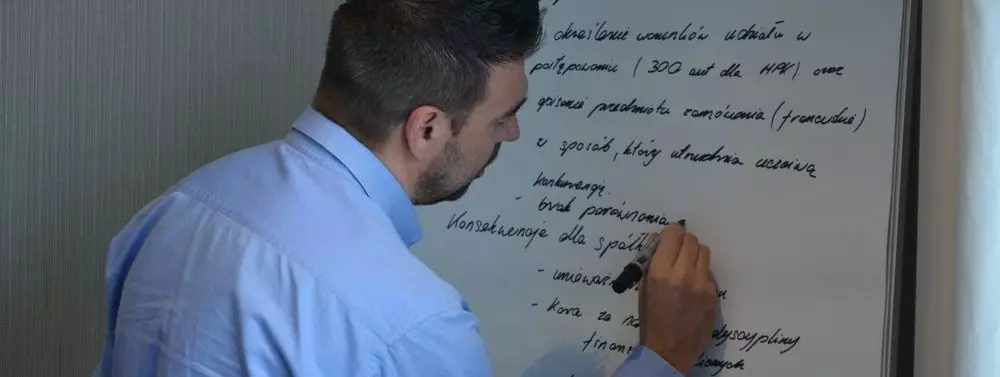 określenie warunków udziału w
postępowaniu (300 aut dla HPK) oraz
opisanie przedmiotu zamówienia (francuskie)
w sposób, który utrudnia uczciwą
konkurencję.
- brak porównania
Konsekwencje dla spółk
- unieważ
- Kara za na dyscypliny
finan licznych